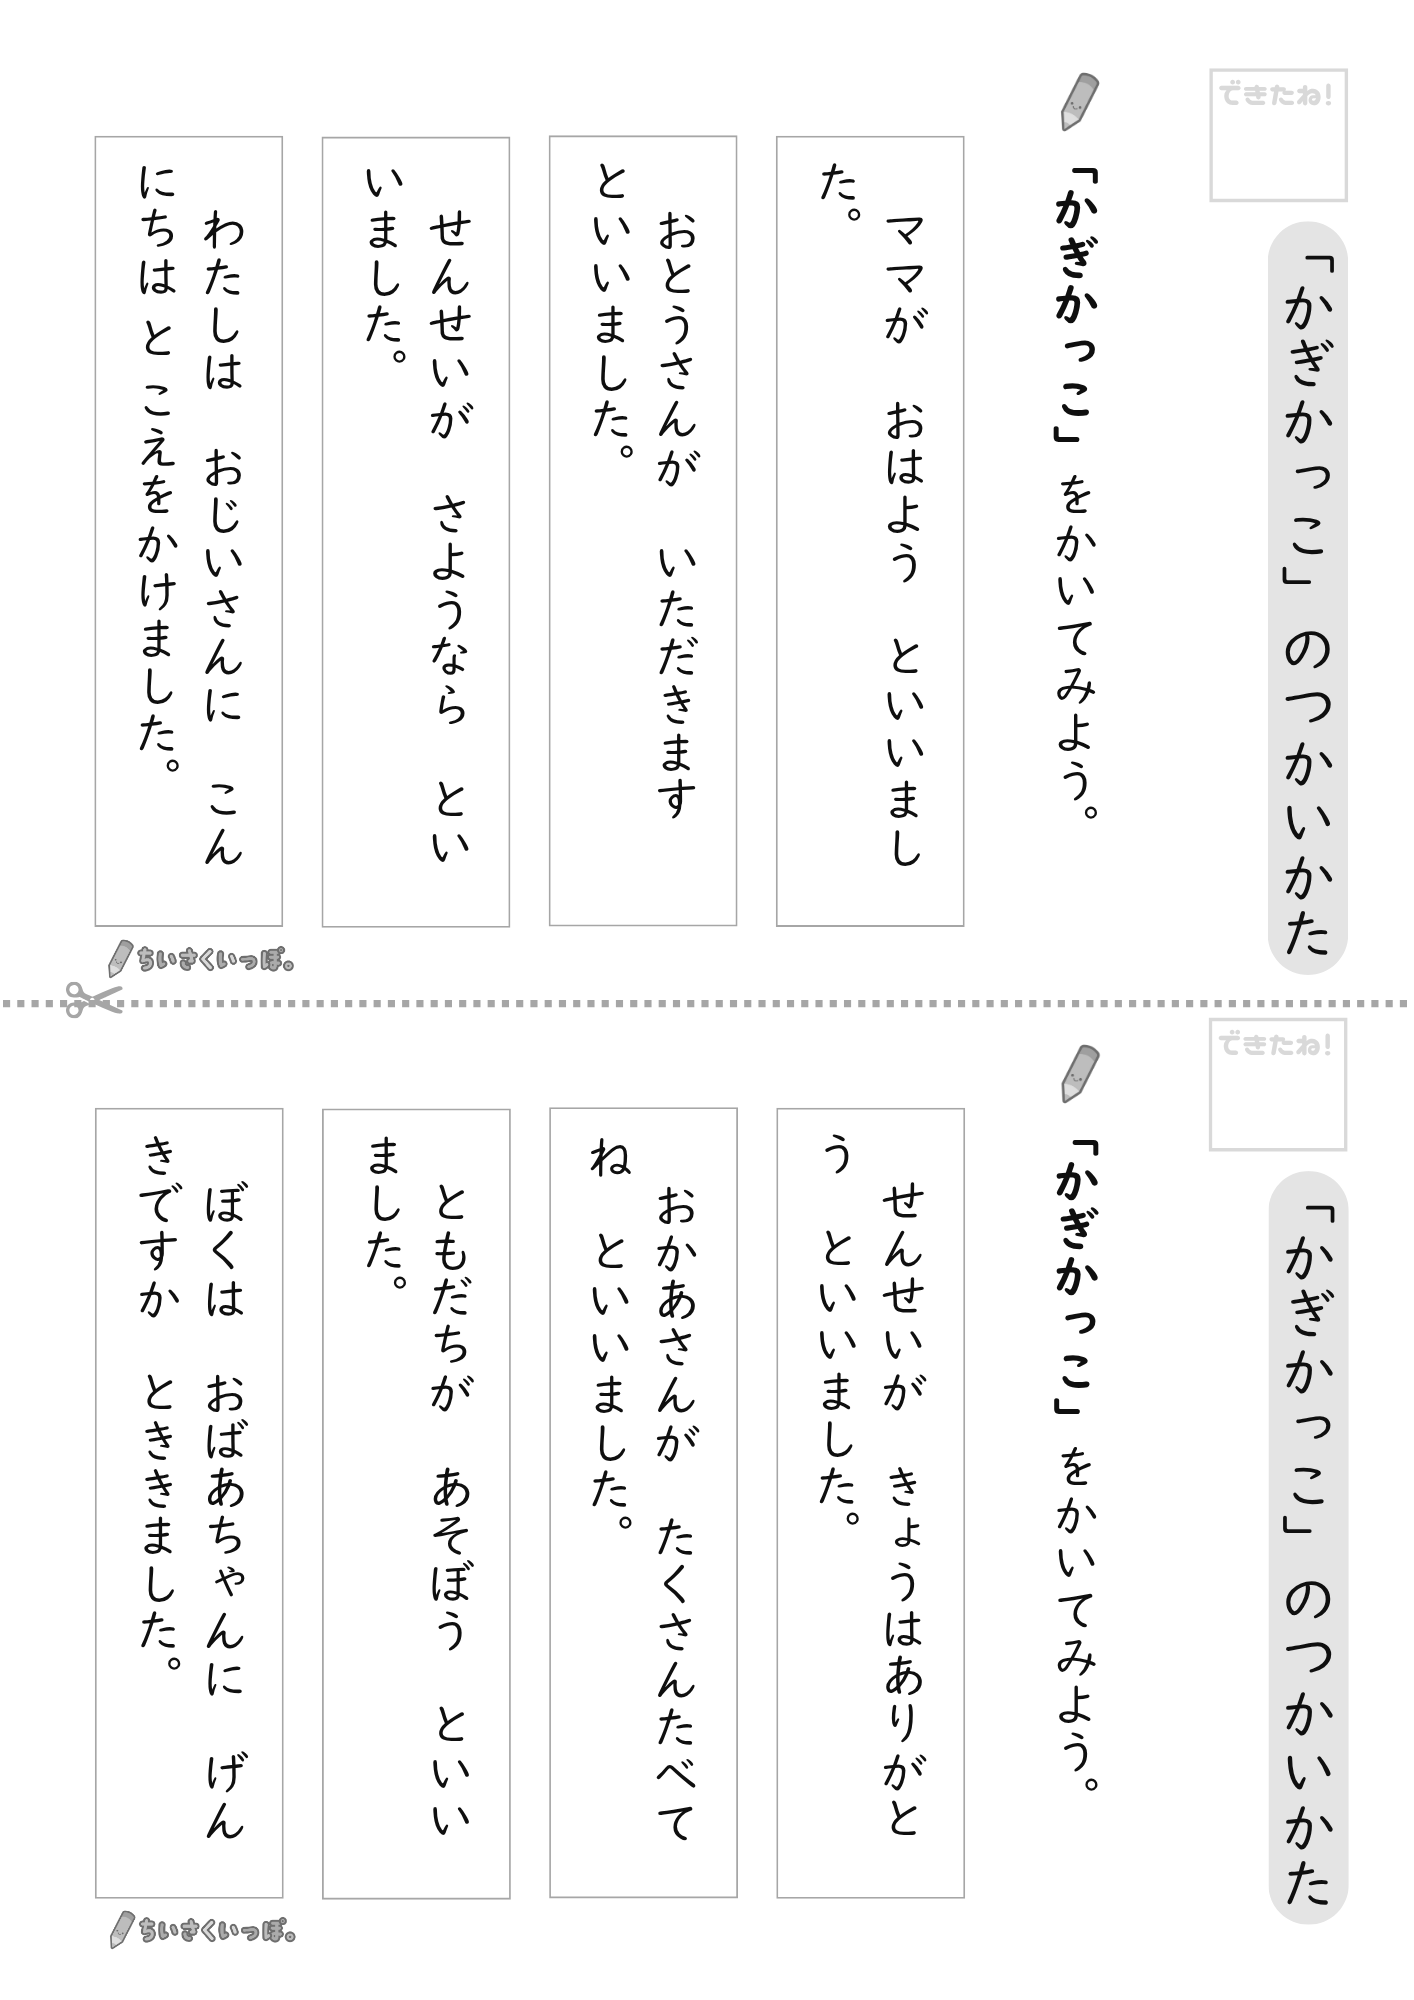 できたね!
「かぎかっこ」のつかいかた
「かぎかっこ」をかいてみよう。
ママが　おはよう　といいまし
た。
おとうさんが　いただきます
といいました。
せんせいが　さようなら　とい
いました。
わたしは　おじいさんに　こん
にちは と こえをかけました。
ちいさくいっぽ。
できたね!
「かぎかっこ」のつかいかた
「かぎかっこ」をかいてみよう。
せんせいが　きょうはありがと
う　といいました。
おかあさんが　たくさんたべて
ね　といいました。
ともだちが　あそぼう　といい
ました。
ぼくは　おばあちゃんに　げん
きですか　とききました。
ちいさくいっぽ。